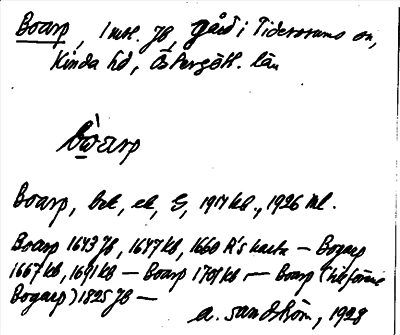 Boarp, 1 mtl. Jb, gård i Tidersrums sn,
Kinda hd, Östergötl. län
bòarp
Boarp, 1917 kb., 1926 ml.
Boarp 1643 Jb, 1647 kb, 1660 R's karta — Bogarp
1667 kb, 1691 kb — Boarp 1701 kb — Boarp (
Bogarp) 1825 Jb —
a. Sandström, 1928